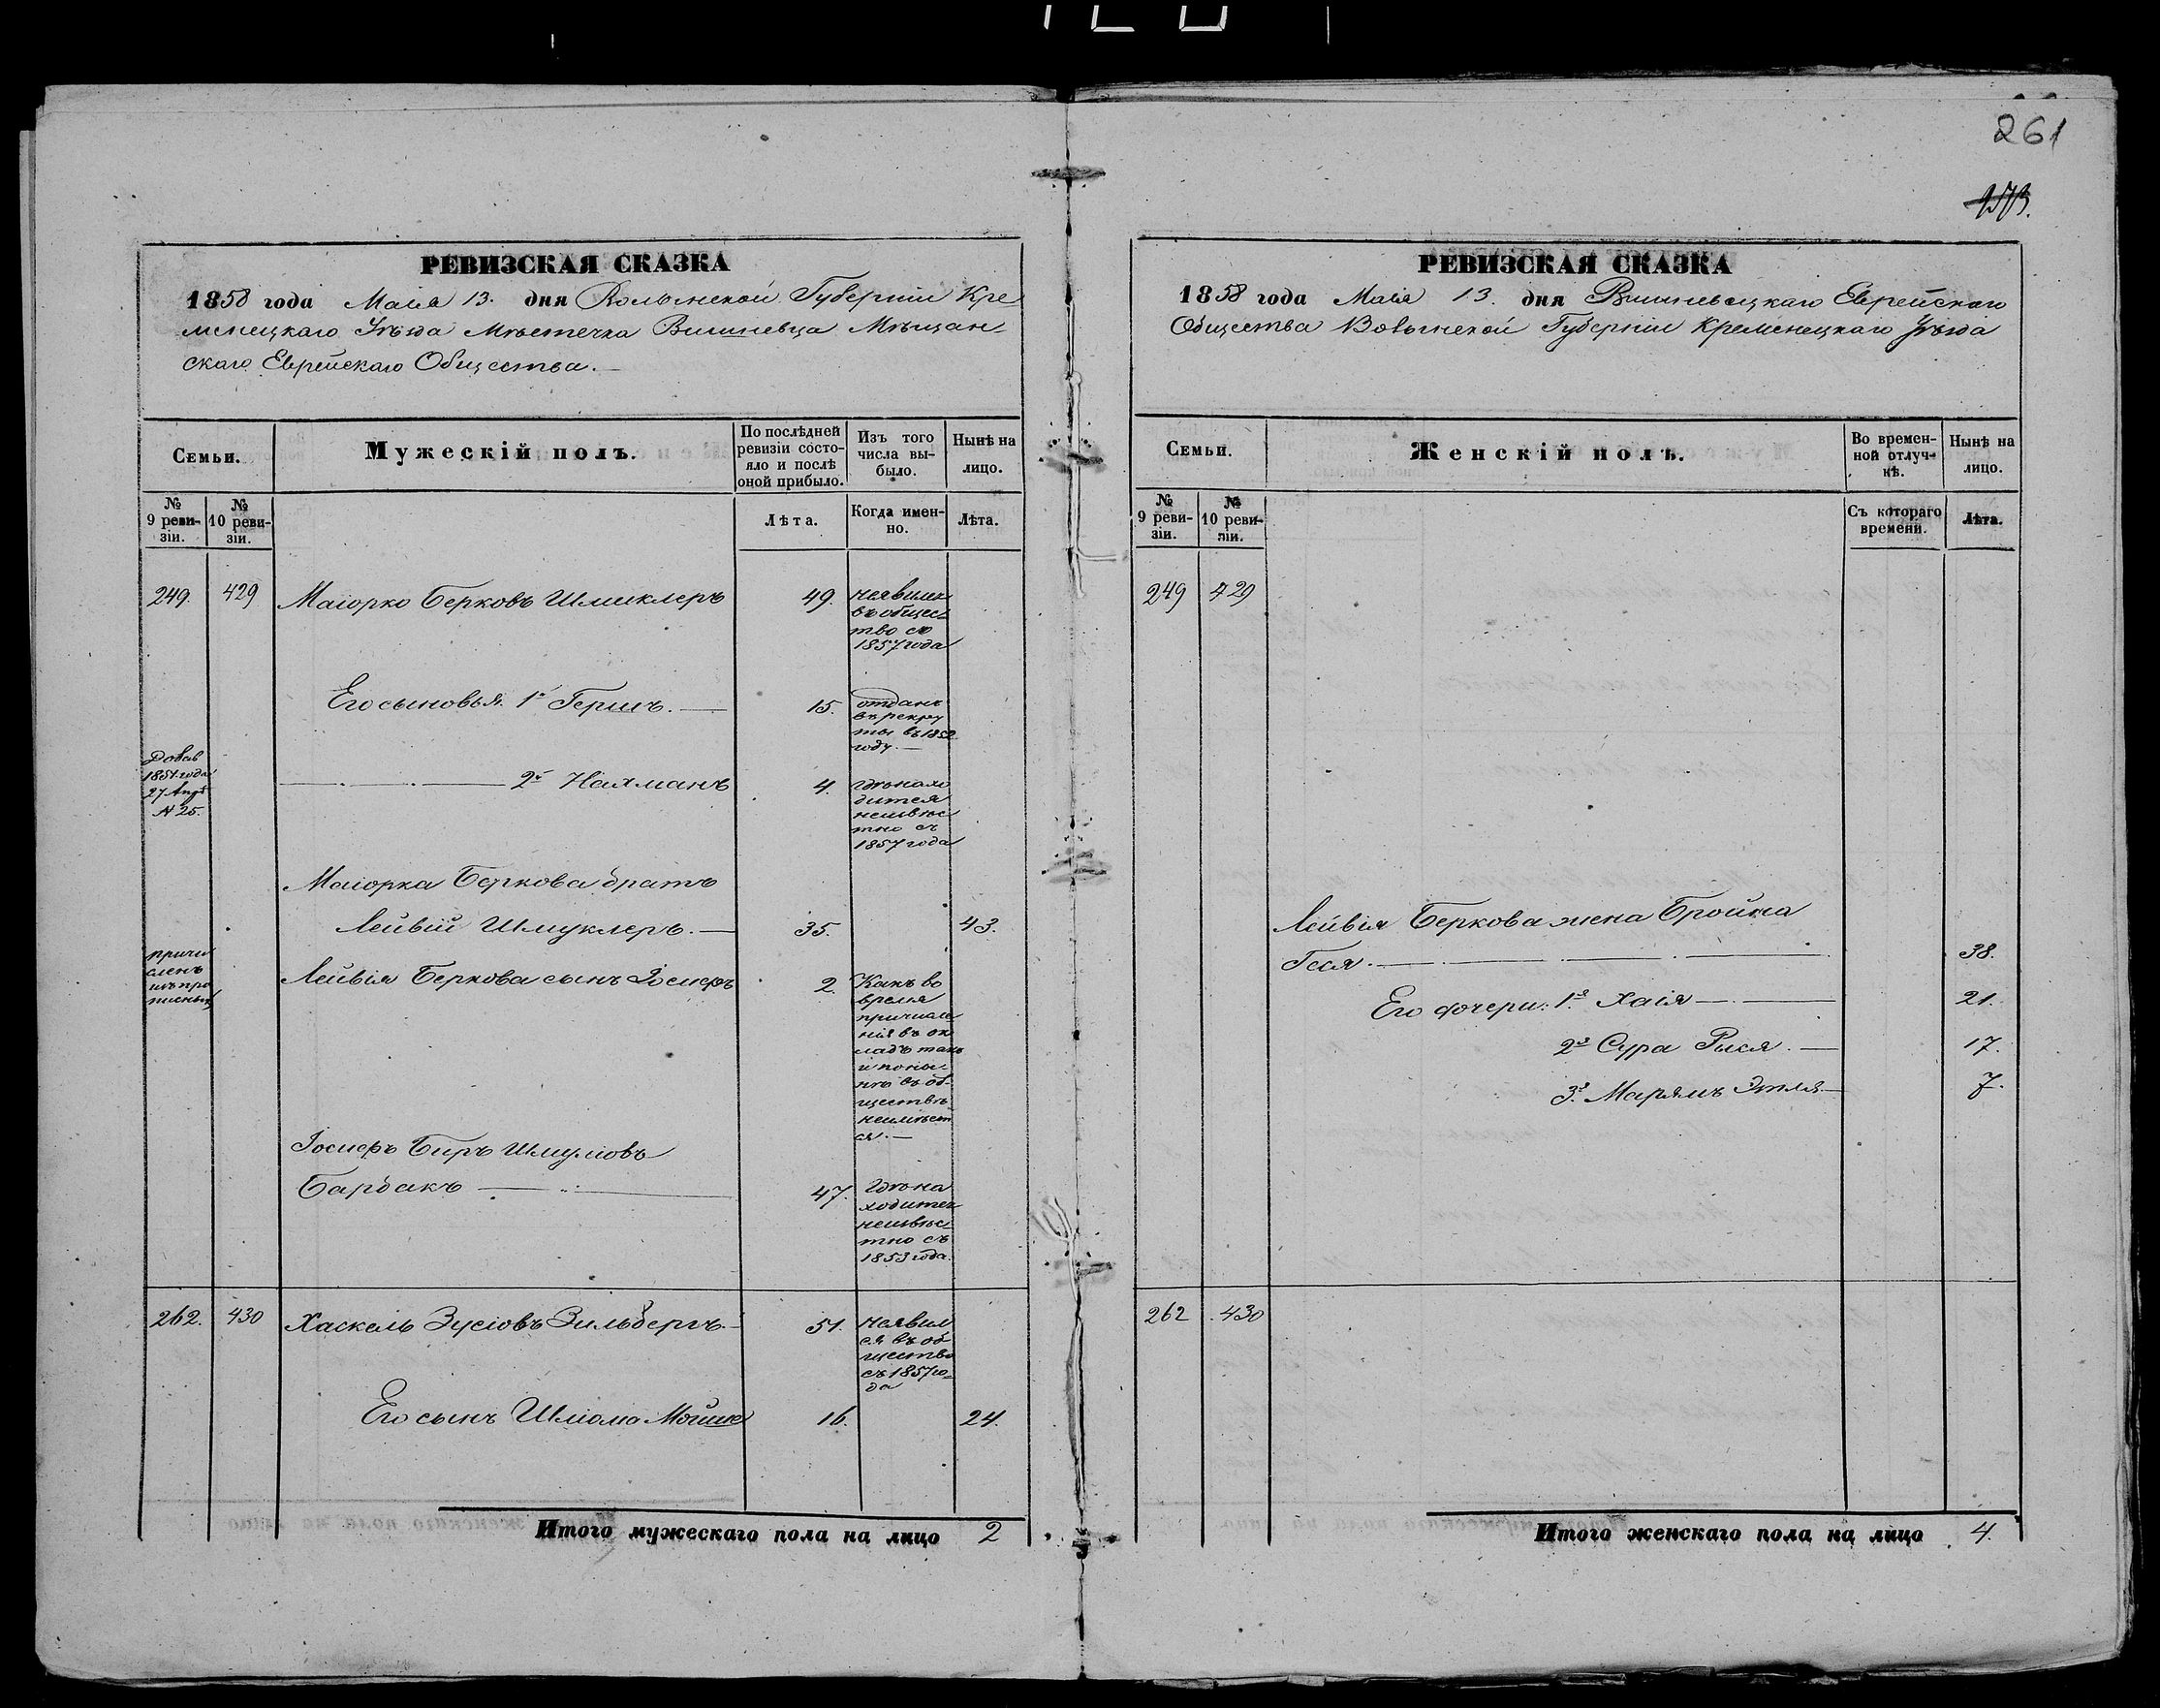 261
РЕВИЗСКАЯ СКАЗКА
1858 года Маія 13. дня Волынской Губерніи Кре-
менецкаго Уѣзда Мѣстечка Вишневца Мѣщан-
скаго Еврейскаго Общества.
Семьи.
Мужескій полъ.
По послѣдней
ревизіи состо-
яло и послѣ
оной прибыло.
Изъ того
числа вы-
было.
Нынѣ на
лицо.
№
9 реви-
зіи.
№
10 реви-
зіи.
Лѣта.
Когда имен-
но.
Лѣта.
249. 429 Маіорко Берковъ Шмуклеръ 49.
неявился
въ общес-
тво съ
1857 года
Его сыновья. 1й Гершъ. — 15.
отданъ
въ рекру
ты въ 1852
году. —
Добав
1851 года
27 Апр
N 25.
2й Нахманъ 4.
гдѣ нахо
дится
неизвѣс
тно съ
1857 года
Маіорка Беркова братъ
Лейвій Шмуклеръ. — 35. 43.
причи
сленъ
изъ про
писныхъ
Лейвія Беркова сынъ Іосифъ 2.
Какъ во
время
причисле
нія въ ок
ладъ такъ
и поны-
нѣ въ об-
ществѣ
неимѣет
ся. —
Іосифъ Беръ Шмуліовъ
Барбакъ — 47.
Гдѣ на
ходится
неизвѣс
тно съ
1853 года.
262. 430 Хаскель Зусіовъ Зильбергъ. — 51.
неявил
ся въ об
щество
съ 1857 го-
да
Его сынъ Шліома Мошко 16. 24.
Итого мужескаго пола на лицо 2
РЕВИЗСКАЯ СКАЗКА
1858 года Маія 13. дня Вишневецкаго Еврейскаго
Общества Волынской Губерніи Кременецкаго Уѣзда
Семьи.
Женскій полъ.
Во времен-
ной отлуч-
кѣ.
Нынѣ на
лицо.
№
9 реви-
зіи.
№
10 реви-
зіи.
Съ котораго
времени.
Лѣта.
249 429
Лейвія Беркова жена Бройна
Геся. — 38.
Его дочери: 1я Хаія — 21.
2я Сура Рыся. — 17.
3я Марьямъ Этля — 7.
262 430
Итого женскаго пола на лицо 4.